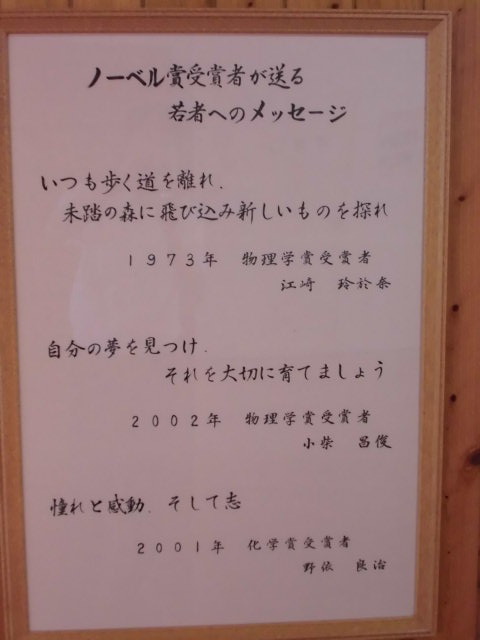 ノーベル賞受賞者が送る
若者へのメッセージ
いつも歩く道を離れ.
未踏の森に飛び込み新しいものを探れ
1973年 物理学賞受賞者
江崎 玲於奈
自分の夢を見つけ.
それを大切に育てましょう
2002年 物理学賞受賞者
小柴 昌俊
憧れと感動. そして志
2001年 化学賞受賞者
野依 良治